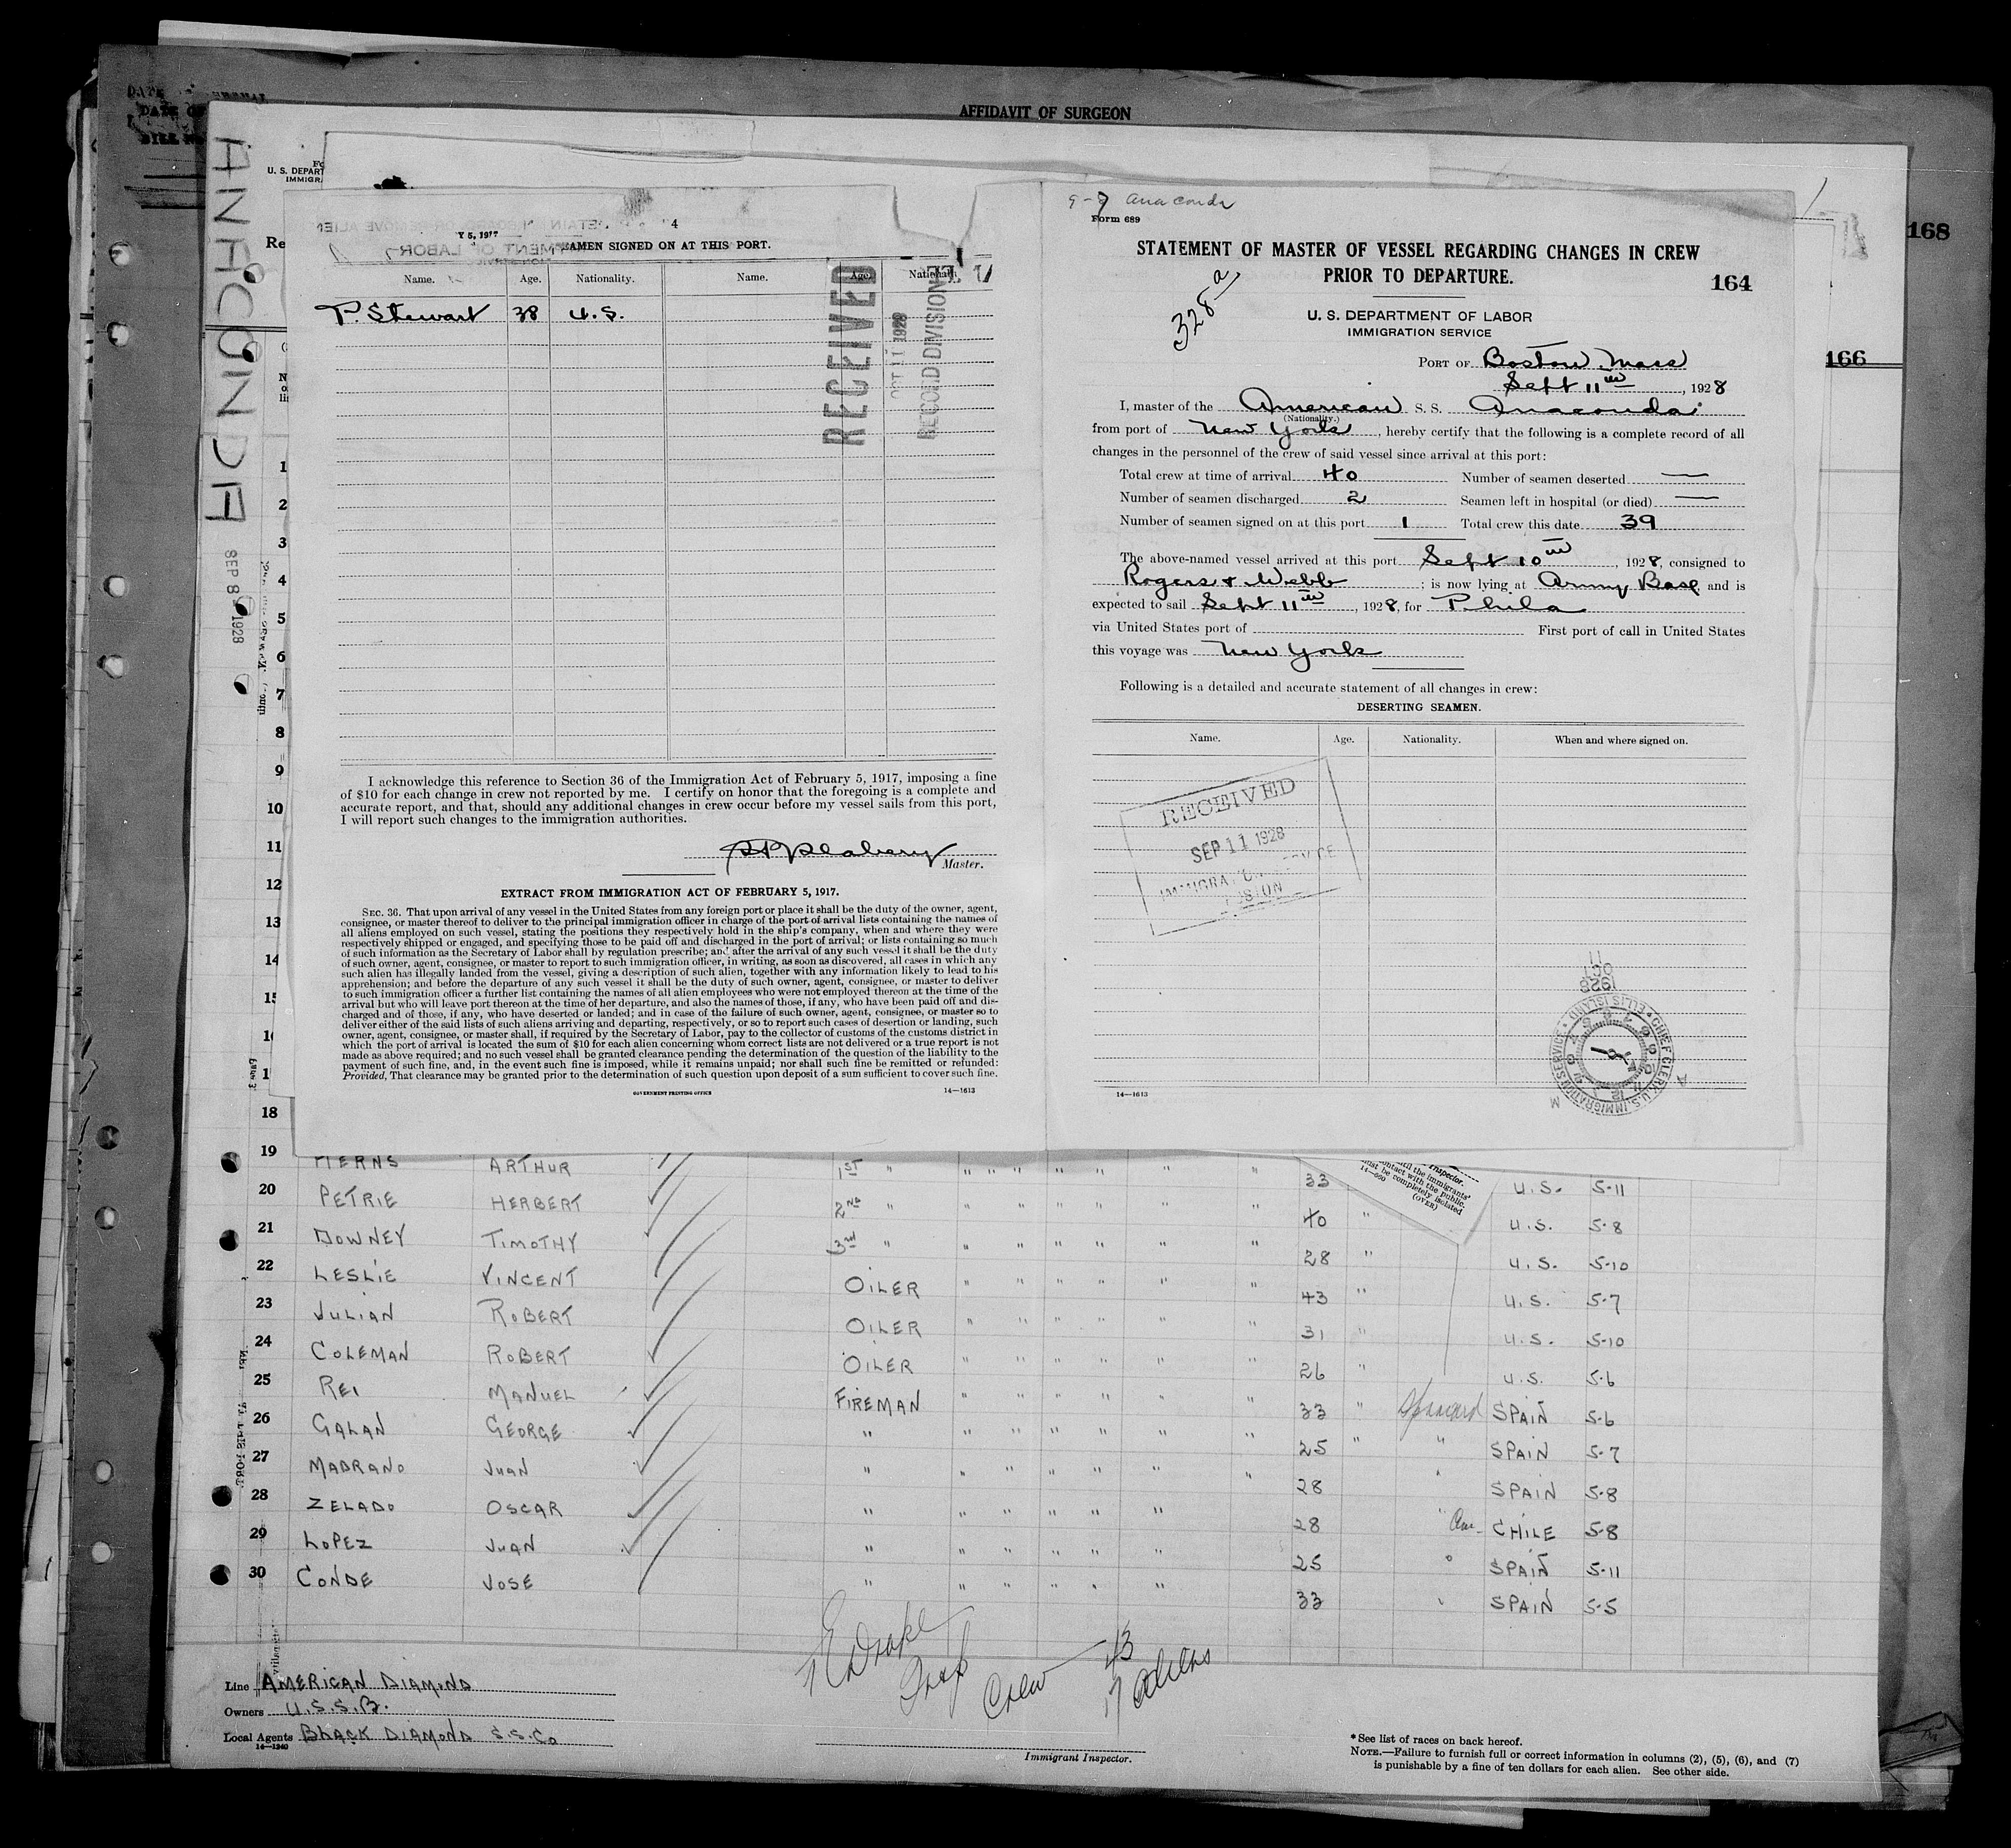 AFFIDAVIT OF SURGEON
168
166
ANACONDA
SEP 8 1928
U. S. DEPART
IMMIGRA
Re
Y 5, 1917
4
SEAMEN SIGNED ON AT THIS PORT.
Name. Age. Nationality. Name. Age. Nationality.
T. Stewart 38 U.S.
RECEIVED
OCT 11 1928
RECORD DIVISION
I acknowledge this reference to Section 36 of the Immigration Act of February 5, 1917, imposing a fine
of $10 for each change in crew not reported by me. I certify on honor that the foregoing is a complete and
accurate report, and that, should any additional changes in crew occur before my vessel sails from this port,
I will report such changes to the immigration authorities.
Master.
EXTRACT FROM IMMIGRATION ACT OF FEBRUARY 5, 1917.
SEC. 36. That upon arrival of any vessel in the United States from any foreign port or place it shall be the duty of the owner, agent,
consignee, or master thereof to deliver to the principal immigration officer in charge of the port of arrival lists containing the names of
all aliens employed on such vessel, stating the positions they respectively hold in the ship's company, when and where they were
respectively shipped or engaged, and specifying those to be paid off and discharged in the port of arrival; or lists containing so much
of such information as the Secretary of Labor shall by regulation prescribe; and after the arrival of any such vessel it shall be the duty
of such owner, agent, consignee, or master to report to such immigration officer, in writing, as soon as discovered, all cases in which any
such alien has illegally landed from the vessel, giving a description of such alien, together with any information likely to lead to his
apprehension; and before the departure of any such vessel it shall be the duty of such owner, agent, consignee, or master to deliver
to such immigration officer a further list containing the names of all alien employees who were not employed thereon at the time of the
arrival but who will leave port thereon at the time of her departure, and also the names of those, if any, who have been paid off and dis-
charged and of those, if any, who have deserted or landed; and in case of the failure of such owner, agent, consignee, or master so to
deliver either of the said lists of such aliens arriving and departing, respectively, or so to report such cases of desertion or landing, such
owner, agent, consignee, or master shall, if required by the Secretary of Labor, pay to the collector of customs of the customs district in
which the port of arrival is located the sum of $10 for each alien concerning whom correct lists are not delivered or a true report is not
made as above required; and no such vessel shall be granted clearance pending the determination of the question of the liability to the
payment of such fine, and, in the event such fine is imposed, while it remains unpaid; nor shall such fine be remitted or refunded:
Provided, That clearance may be granted prior to the determination of such question upon deposit of a sum sufficient to cover such fine.
GOVERNMENT PRINTING OFFICE 14—1613
Anaconda
Form 689
STATEMENT OF MASTER OF VESSEL REGARDING CHANGES IN CREW
PRIOR TO DEPARTURE.
164
328a
U. S. DEPARTMENT OF LABOR
IMMIGRATION SERVICE
PORT OF Boston, Mass
Sept 11th, 1928
I, master of the American S. S. Anaconda
(Nationality.)
from port of New York, hereby certify that the following is a complete record of all
changes in the personnel of the crew of said vessel since arrival at this port:
Total crew at time of arrival 40 Number of seamen deserted —
Number of seamen discharged 2 Seamen left in hospital (or died) —
Number of seamen signed on at this port 1 Total crew this date 39
The above-named vessel arrived at this port Sept 10th, 1928, consigned to
Rogers & Webb; is now lying at Army Base and is
expected to sail Sept 11th, 1928, for Phila
via United States port of First port of call in United States
this voyage was New York
Following is a detailed and accurate statement of all changes in crew:
DESERTING SEAMEN.
Name. Age. Nationality. When and where signed on.
RECEIVED
SEP 11 1928
11
OCT
1928
CHIEF CLERK, U.S. IMMIGRATION SERVICE • ELLIS ISLAND •
14—1613
1
2
3
4
5
6
7
8
9
10
11
12
13
14
18
Inspector.
until the immigrants'
contact with the public.
must be completely isolated
14—690
(OVER)
19 HERNS ARTHUR 1ST " " " " " " " 33 U.S. 5-11
20 PETRIE HERBERT 2ND " " " " " " " 40 " U.S. 5-8
21 DOWNEY TIMOTHY 3rd " " " " " " " 28 " U.S. 5-10
22 LESLIE VINCENT OILER " " " " " " 43 " U.S. 5-7
23 JULIAN ROBERT OILER " " " " " " 31 " U.S. 5-10
24 COLEMAN ROBERT OILER " " " " " " 26 " U.S. 5-6
25 REI MANUEL FIREMAN " " " " " " 33 " Spaniard SPAIN 5-6
26 GALAN GEORGE " " " " " " " 25 " " SPAIN 5-7
27 MADRANO JUAN " " " " " " " 28 " SPAIN 5-8
28 ZELADO OSCAR " " " " " " 28 " Am. CHILE 5-8
29 LOPEZ JUAN " " " " " " 25 " SPAIN 5-11
30 CONDE JOSE " " " " " " 33 " SPAIN 5-5
Drake
Insp
Crew — 43
17 aliens
Line AMERICAN DIAMOND
Owners U.S.S.B.
Local Agents BLACK DIAMOND S.S. Co
14—1240
Immigrant Inspector.
*See list of races on back hereof.
NOTE.—Failure to furnish full or correct information in columns (2), (5), (6), and (7)
is punishable by a fine of ten dollars for each alien. See other side.